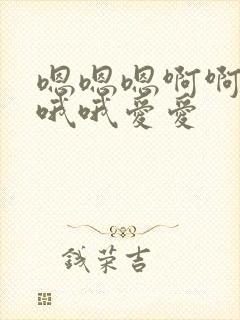 嗯嗯嗯啊啊
哦哦爱爱
钱荣吉